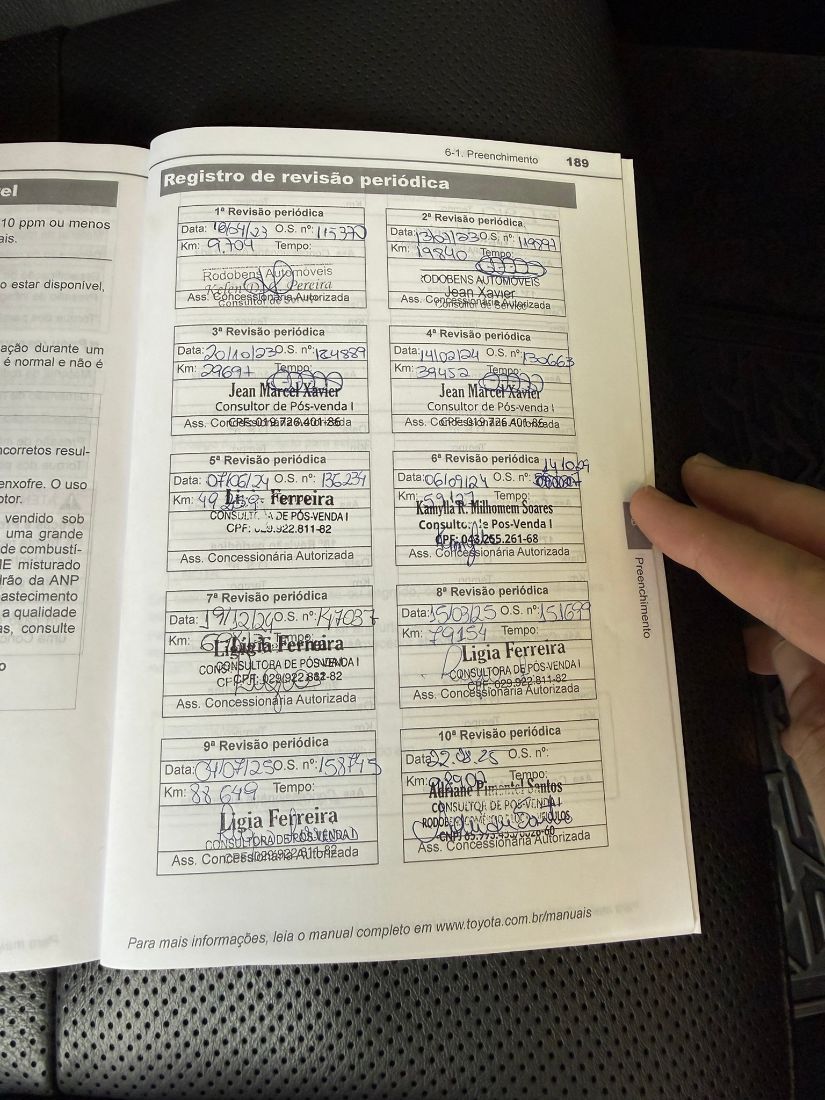 el
10 ppm ou menos
ais.
o estar disponível,
ação durante um
é normal e não é
ncorretos resul-
enxofre. O uso
otor.
vendido sob
uma grande
de combustí-
E misturado
rão da ANP
astecimento
a qualidade
as, consulte
6-1. Preenchimento 189
Registro de revisão periódica
1ª Revisão periódica
Data: /04/23 O.S. nº: 115370
Km: 9.704 Tempo:
Rodobens Automóveis
Pereira
Ass. Concessionária Autorizada
Consultor de
2ª Revisão periódica
Data: 13/07/23 O.S. nº: 119897
Km: 19840 Tempo:
RODOBENS AUTOMÓVEIS
Jean Xavier
Ass. Concessionária Autorizada
Consultor de Serviço
3ª Revisão periódica
Data: 20/10/23 O.S. nº: 124889
Km: 29697 Tempo:
Jean Marcel Xavier
Consultor de Pós-venda I
Ass. Concessionária Autorizada
CPF: 019.726.401-86
4ª Revisão periódica
Data: 14/02/24 O.S. nº: 130663
Km: 39452 Tempo:
Jean Marcel Xavier
Consultor de Pós-venda I
Ass. Concessionária Autorizada
CPF: 019.726.401-86
5ª Revisão periódica
Data: 07/06/24 O.S. nº: 136234
Km: 49
Ligia Ferreira
CONSULTORA DE PÓS-VENDA I
CPF: 029.922.811-82
Ass. Concessionária Autorizada
6ª Revisão periódica
Data: 06/09/24 O.S. nº:
Km: 59127 Tempo:
Kamylla R. Milhomem Soares
Consultora de Pos-Venda I
CPF: 048.255.261-68
Ass. Concessionária Autorizada
7ª Revisão periódica
Data: 19/12/24 O.S. nº: 147037
Km: Tempo:
Ligia Ferreira
CONSULTORA DE PÓS-VENDA I
CPF: 029.922.811-82
Ass. Concessionária Autorizada
8ª Revisão periódica
Data: 15/03/25 O.S. nº: 151699
Km: 79154 Tempo:
Ligia Ferreira
CONSULTORA DE PÓS-VENDA I
CPF: 029.922.811-82
Ass. Concessionária Autorizada
9ª Revisão periódica
Data: 04/07/25 O.S. nº: 158745
Km: 88 649 Tempo:
Ligia Ferreira
CONSULTORA DE PÓS-VENDA I
Ass. Concessionária Autorizada
CPF: 029.922.811-82
10ª Revisão periódica
Data: 22.08.25 O.S. nº:
Km: 98907 Tempo:
Adriane Pimentel Santos
CONSULTOR DE PÓS-VENDA I
Ass. Concessionária Autorizada
Preenchimento
Para mais informações, leia o manual completo em www.toyota.com.br/manuais